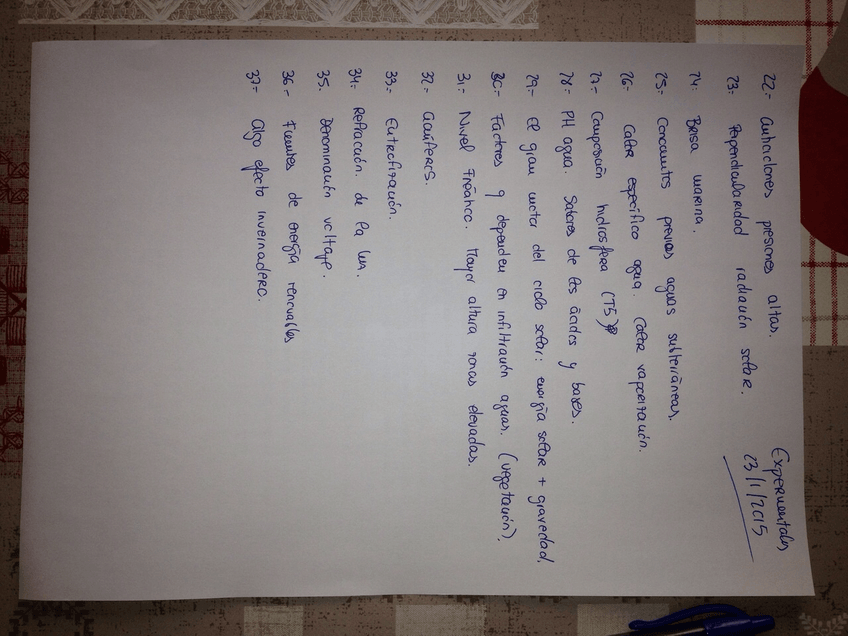 Experimentales
23/1/2015
22- Anticiclones presiones altas.
23- Perpendicularidad radiación solar.
24- Brisa marina.
25- Conocimitos previos aguas subterráneas.
26- Calor específico agua. Calor vaporización.
27- Composición hidrosfera (T5)
28- PH agua. Sabores de los ácidos y bases.
29- El gran motor del ciclo solar: energía solar + gravedad.
30- Factores q dependen en infiltración aguas. (vegetación).
31- Nivel freático. Mayor altura zonas elevadas.
32- acuíferos.
33- Eutrofización.
34- Refracción de la luz.
35- Denominación voltaje.
36- Fuentes de energía renovables
37- Algo efecto invernadero.